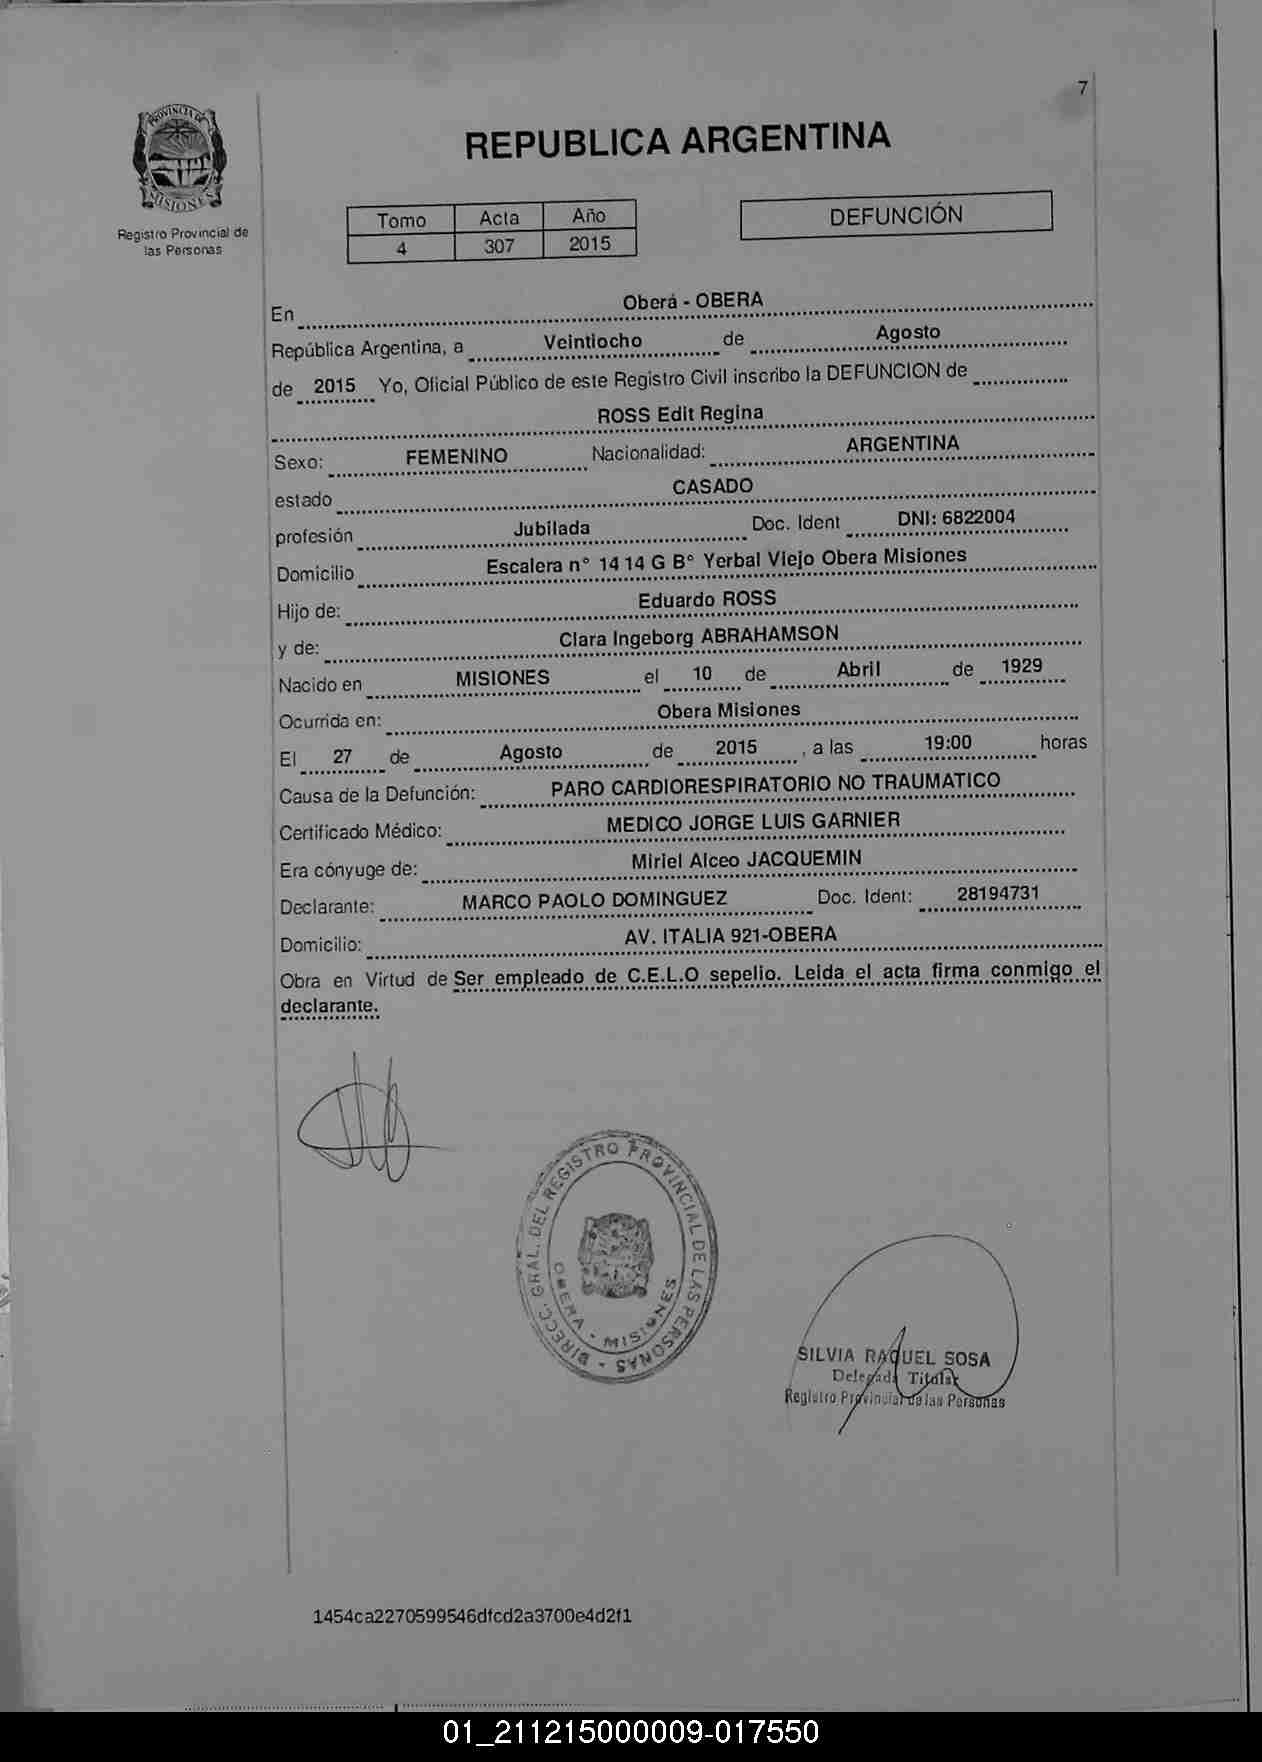 7
PROVINCIA DE
MISIONES
Registro Provincial de
las Personas
REPUBLICA ARGENTINA
Tomo Acta Año
4 307 2015
DEFUNCIÓN
En Oberá - OBERA
República Argentina, a Veintiocho de Agosto
de 2015 Yo, Oficial Público de este Registro Civil inscribo la DEFUNCION de
ROSS Edit Regina
Sexo: FEMENINO Nacionalidad: ARGENTINA
estado CASADO
profesión Jubilada Doc. Ident DNI: 6822004
Domicilio Escalera n° 14 14 G B° Yerbal Viejo Obera Misiones
Hijo de: Eduardo ROSS
y de: Clara Ingeborg ABRAHAMSON
Nacido en MISIONES el 10 de Abril de 1929
Ocurrida en: Obera Misiones
El 27 de Agosto de 2015 , a las 19:00 horas
Causa de la Defunción: PARO CARDIORESPIRATORIO NO TRAUMATICO
Certificado Médico: MEDICO JORGE LUIS GARNIER
Era cónyuge de: Miriel Alceo JACQUEMIN
Declarante: MARCO PAOLO DOMINGUEZ Doc. Ident: 28194731
Domicilio: AV. ITALIA 921-OBERA
Obra en Virtud de Ser empleado de C.E.L.O sepelio. Leida el acta firma conmigo el
declarante.
DIRECC. GRAL. DEL REGISTRO PROVINCIAL DE LAS PERSONAS -
OBERA - MISIONES
SILVIA RAQUEL SOSA
Delegada Titular
Registro Provincial de las Personas
1454ca2270599546dfcd2a3700e4d2f1
01_211215000009-017550